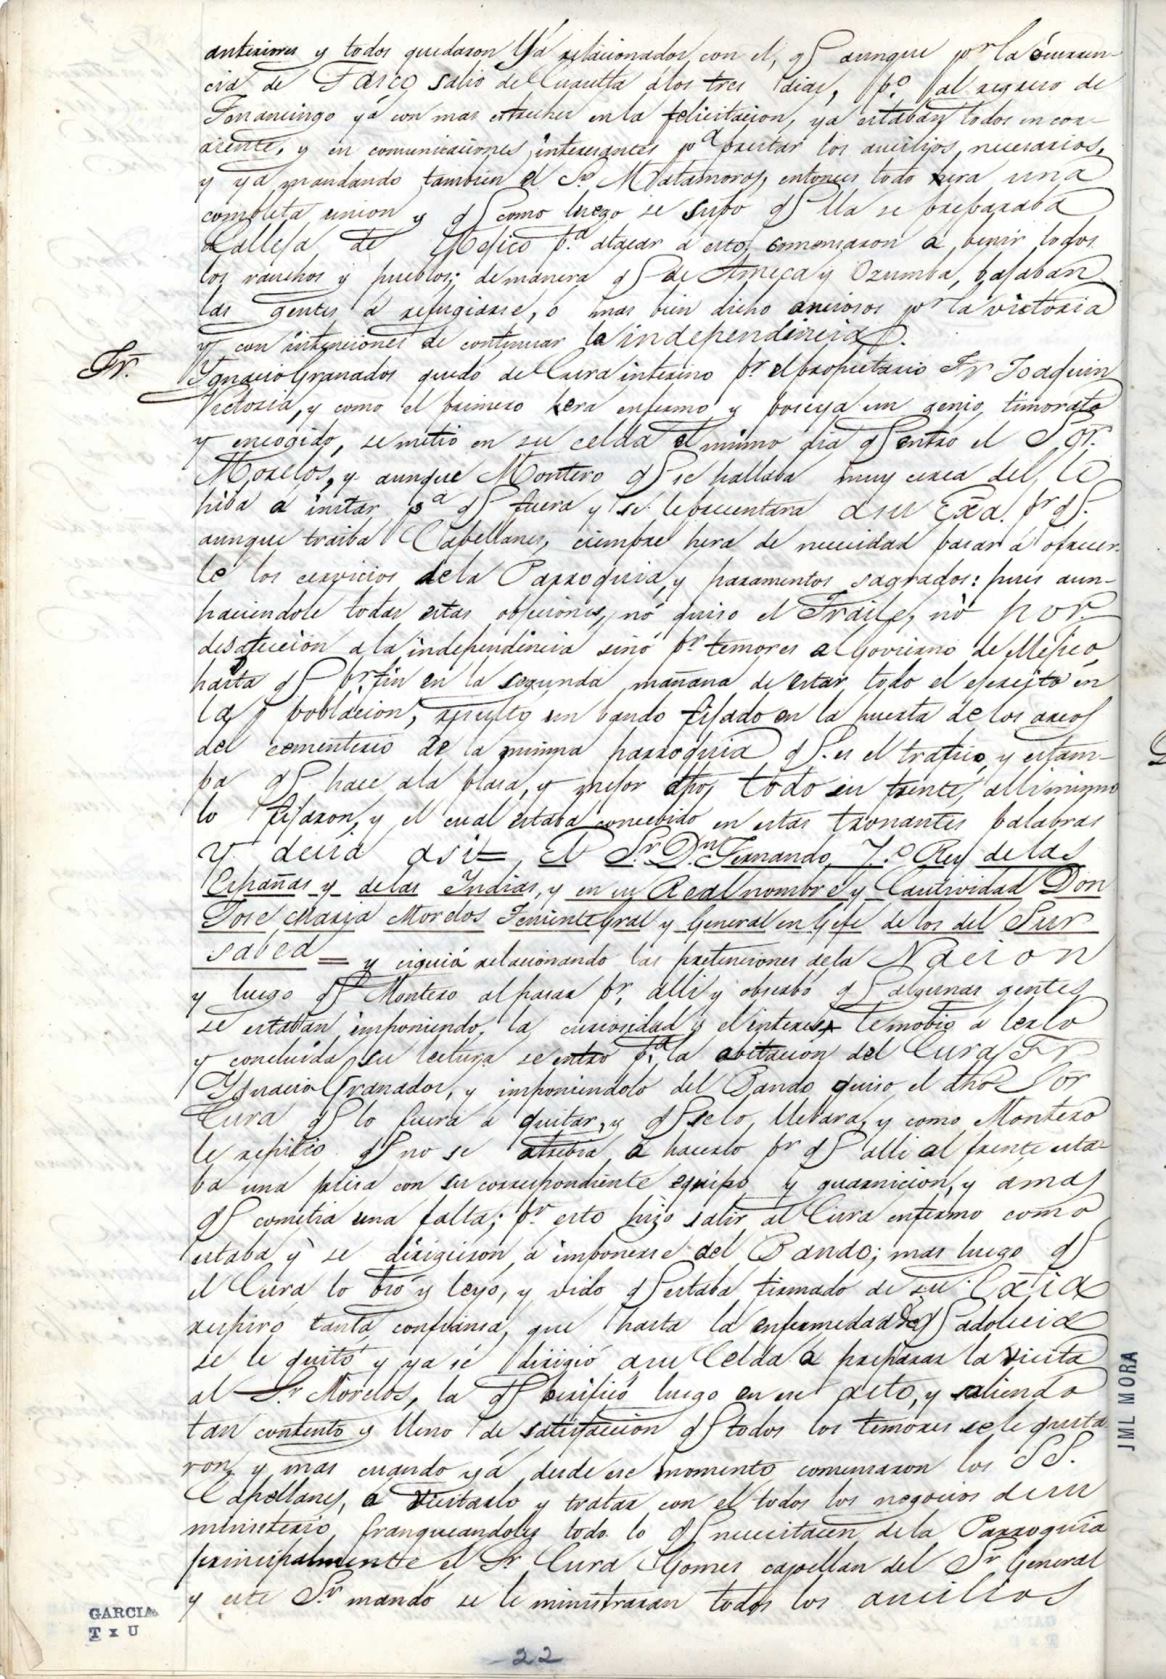 anteriores y todos quedaron Ya relacionados con el, qe aunque pr la ócurren-
cia de Tasco salio de Cuautla álos tres dias, po. al regreso de
Tenancingo yá con mas estreches en la felicitacion, ya estaban todos en cor-
riente, y en comunicaciones interesantes pa prestar los aucilios necesarios,
y ya mandando tambien el Sr. Matamoros, entonces todo hera una
completa union y qe como luego se supo qe lla se preparaba
Calleja de Mejico pa. atacar a esto comensaron a benir todos
los ranchos y pueblos; demanera qe de Ameca y Ozumba, bajaban
las gentes á refugiarse, o mas bien dicho anciosos pr la victoria
y con intenciones de continuar la independencia.
Fr. Ygnacio Granados quedó de Cura interino pr. el propietario Fr Joaquin
Victoria, y como el primero hera enfermo y poseya un genio timorato
y encogido, se metio en su celda el mismo dia qe entro el Sor.
Morelos, y aunque Montero qe se hallaba muy cerca del le
hiba a instar pa qe fuera y se le precentara a su Exa. pr qe.
aunque traiba Capellanes, ciempre hera de nececidad pasar á ofrecer-
le los cervicios dela Parroquia, y paramentos sagrados: pues aun-
haciendole todas estas opciones, nó quiso el Fraile, nó por
desafeccion a la independencia sinó pr temores al Govierno de Mejico,
hasta qe pr. fin en la segunda mañana de estar todo el ejercito en
la poblacion, resulto un bando fijado en la puerta de los arcos
del cementerio de la misma parroquia qe. es el trafico, y estam-
pa qe hace ala plasa, y mejor dho. todo su frente, alli mismo
lo fijaron, y el cual estaba concebido en estas tronantes palabras
y decia asi= El Sr. Dn. Fernando 7.o Rey de las
Españas y de las Indias, y en su Real nombre y Cautividad Don
Jose Maria Morelos Teniente gral y General en Gefe de los del Sur
sabed = y ciguió relacionando las pretenciones dela Nacion
y luego qe Montero al pasar pr. alli y obserbó qe algunas gentes
se estaban imponiendo, la curiosidad y el interes le mobio a lerlo
y concluida su lectura se entro pa. la abitacion del Cura Fr
Ygnacio Granados, y imponiendolo del Bando quiso el dho Sor
Cura qe lo fuera a quitar, y qe selo llevara, y como Montero
le repitio qe no se atrebia a hacerlo pr qe alli al frente esta-
ba una piesa con su correspondiente equipo y guarnicion, y amas
qe cometia una falta; pr esto hizo salir al Cura enfermo como
estaba y se dirigieron a imponerse del Bando; mas luego qe
el Cura lo bió y leyo, y vido qe estaba firmado de su Exía
respiró tanta confiansa, que hasta la enfermedad de qe adolecia
se le quitó y ya se dirigió a su Celda a preparar la vicita
al Sr. Morelos, la qe berificó luego en ese acto, y saliendo
tan contento y lleno de satisfaccion qe todos los temores se le quita-
ron, y mas cuando yá desde ese momento comensaron los SS.
Capellanes, a vicitarlo y tratar con el todos los negocios de su
ministerio, franqueandoles todo lo qe necesitacen de la Parroquia
principalmente el Sr. Cura Gomes capellan del Sr General
y este Sr. mandó se le ministraran todos los aucilios
GARCIA
T x U
22
JML MORA